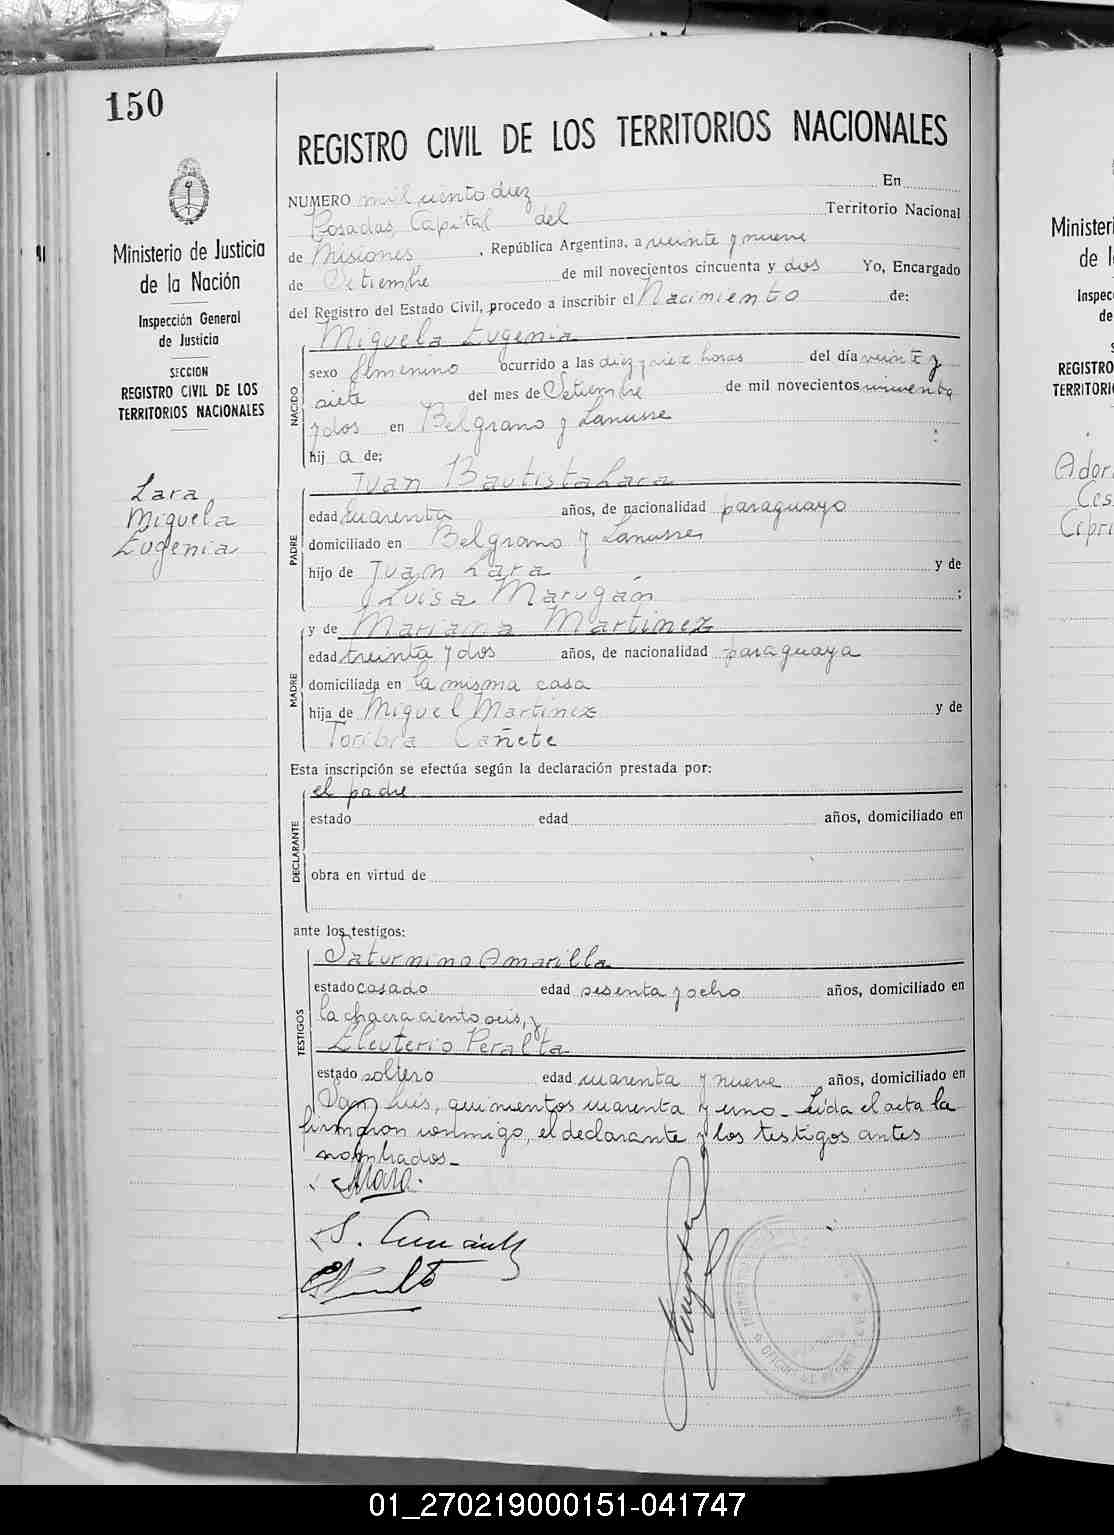 150
REGISTRO CIVIL DE LOS TERRITORIOS NACIONALES
Ministerio de Justicia
de la Nación
Inspección General
de Justicia
SECCION
REGISTRO CIVIL DE LOS
TERRITORIOS NACIONALES
Lara
Miguela
Eugenia
NUMERO mil ciento diez En
Posadas, Capital del Territorio Nacional
de Misiones, República Argentina, a veinte y nueve
de Setiembre de mil novecientos cincuenta y dos Yo, Encargado
del Registro del Estado Civil, procedo a inscribir el Nacimiento de:
NACIDO
Miguela Eugenia
sexo femenino ocurrido a las diez y siez horas del día veinte y
siete del mes de Setiembre de mil novecientos cincuenta
y dos en Belgrano y Lanusse
hij a de; :
PADRE
Juan Bautista Lara
edad cuarenta años, de nacionalidad paraguayo
domiciliado en Belgrano y Lanusse
hijo de Juan Lara y de
Luisa Marugán ;
MADRE
y de Mariana Martinez
edad treinta y dos años, de nacionalidad paraguaya
domiciliada en la misma casa
hija de Miguel Martinez y de
Toribia Cañete
Esta inscripción se efectúa según la declaración prestada por:
DECLARANTE
el padre
estado edad años, domiciliado en
obra en virtud de
ante los testigos:
TESTIGOS
Saturnino Amarilla
estado casado edad sesenta y ocho años, domiciliado en
la chacra ciento seis, y
Eleuterio Peralta
estado soltero edad cuarenta y nueve años, domiciliado en
San Luis, quinientos cuarenta y uno. Leída el acta la
firmaron conmigo, el declarante y los testigos antes
nombrados.
Ministeri
de l
Inspec
de
REGISTRO
TERRITORI
Ador
Ces
Cipri
01_270219000151-041747